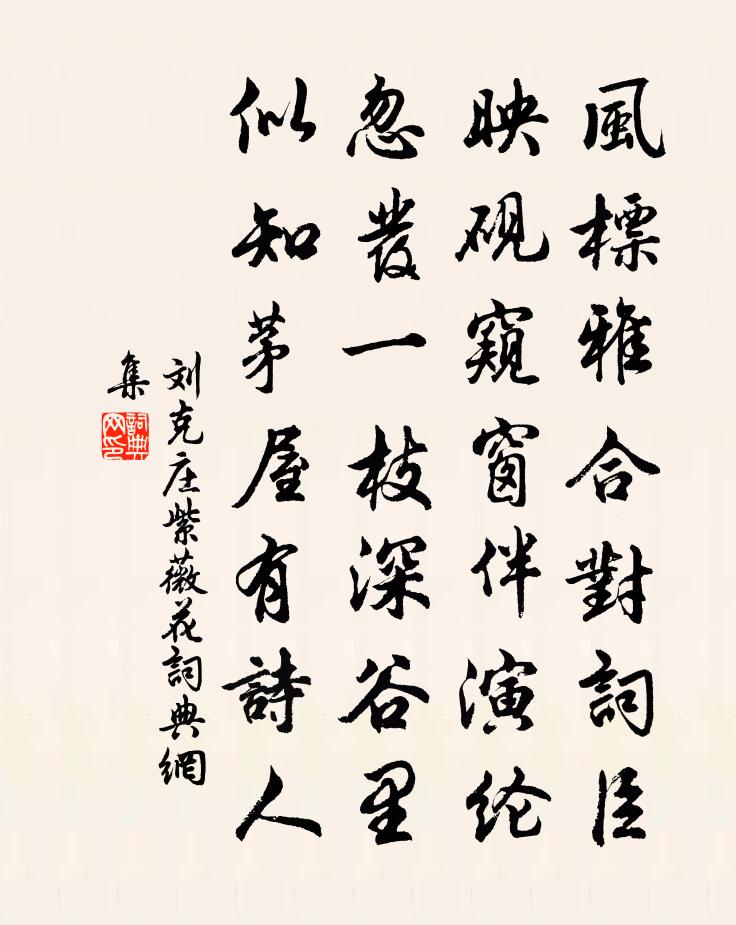 風標雅合對詞臣
映硯窺窗伴演纶
忽發一枝深谷里
似知茅屋有詩人
刘克庄紫薇花詞典網
集
詞典
网印